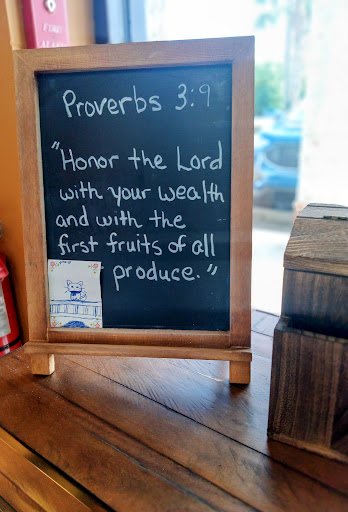 FIRE
Proverbs 3:9
"Honor the Lord
with your wealth
and with the
first fruits of all
produce."